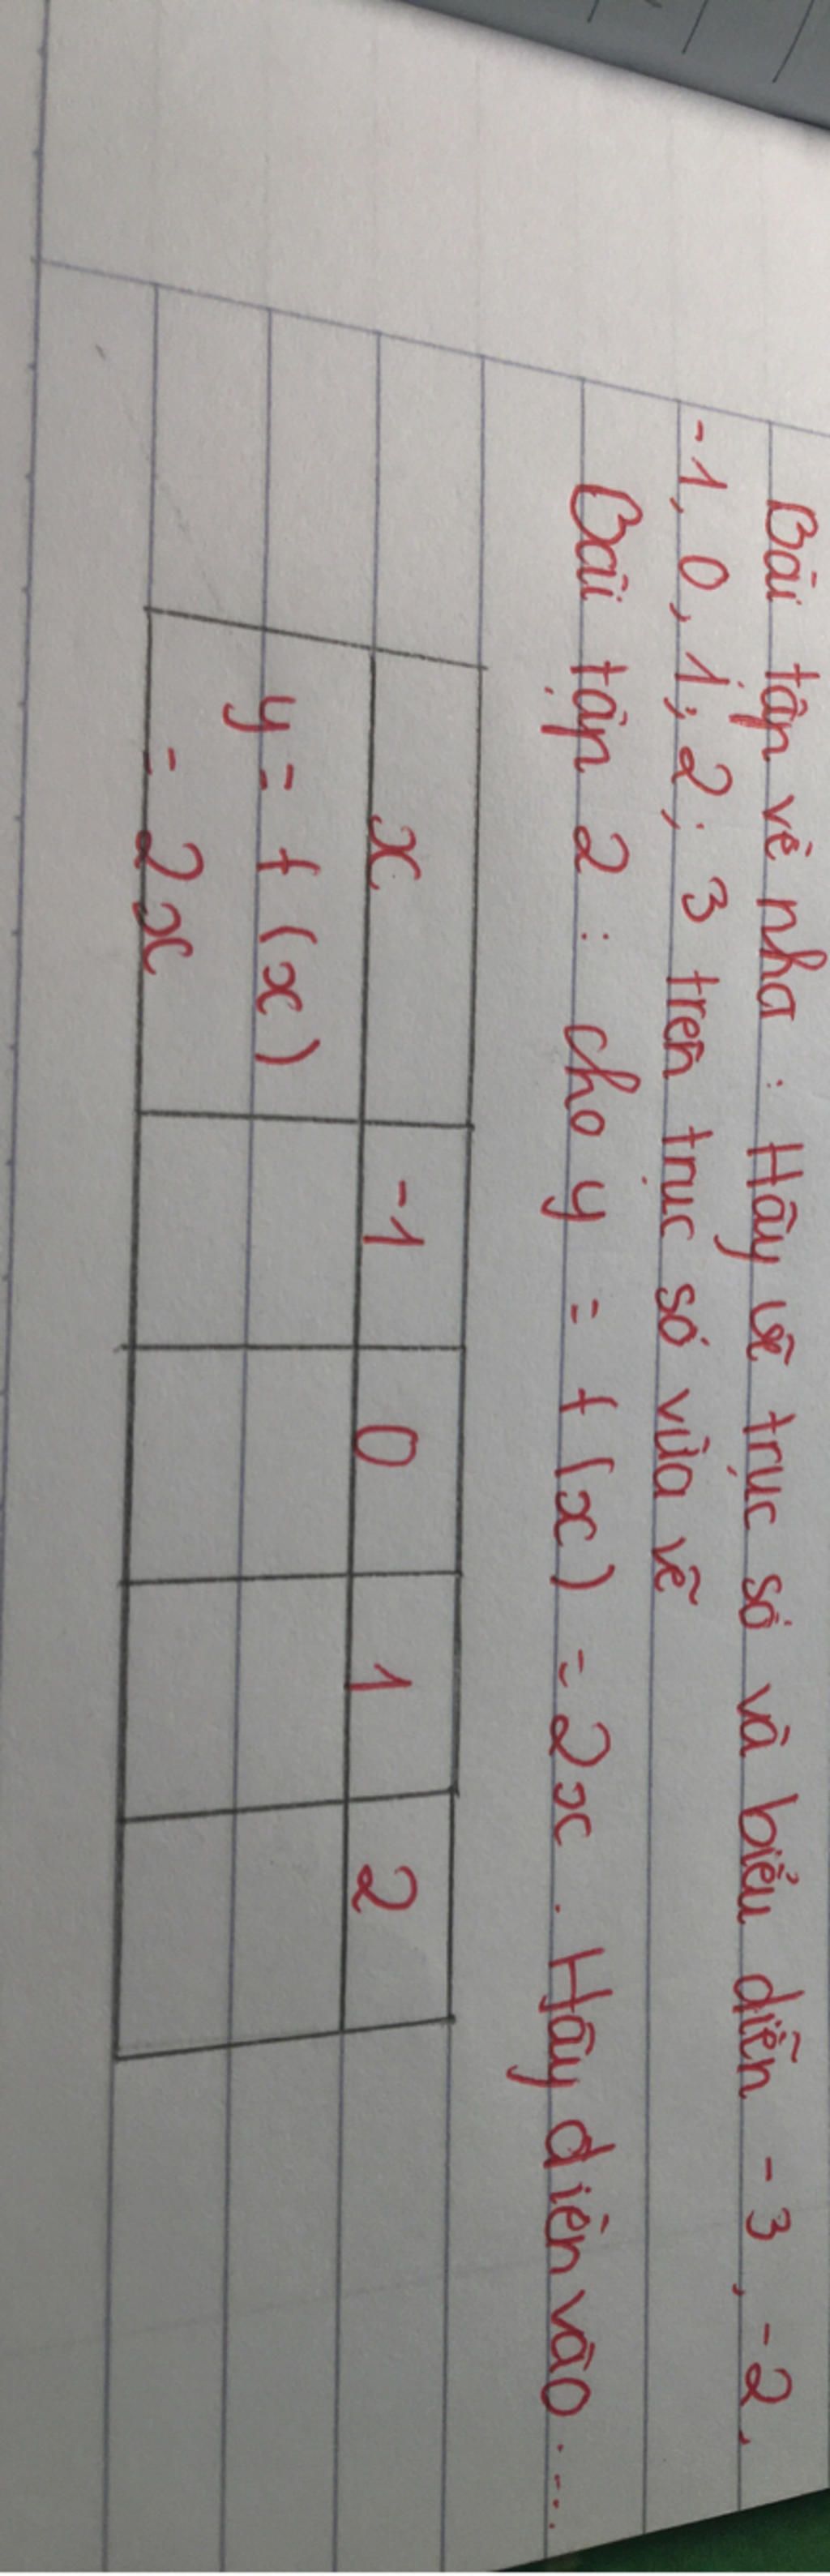 Bài tập về nhà : Hãy vẽ trục số và biểu diễn -3, -2,
-1, 0, 1; 2; 3 trên trục số vừa vẽ
Bài tập 2 : cho y = f(x) = 2x. Hãy điền vào....
x -1 0 1 2
y = f(x)
= 2x